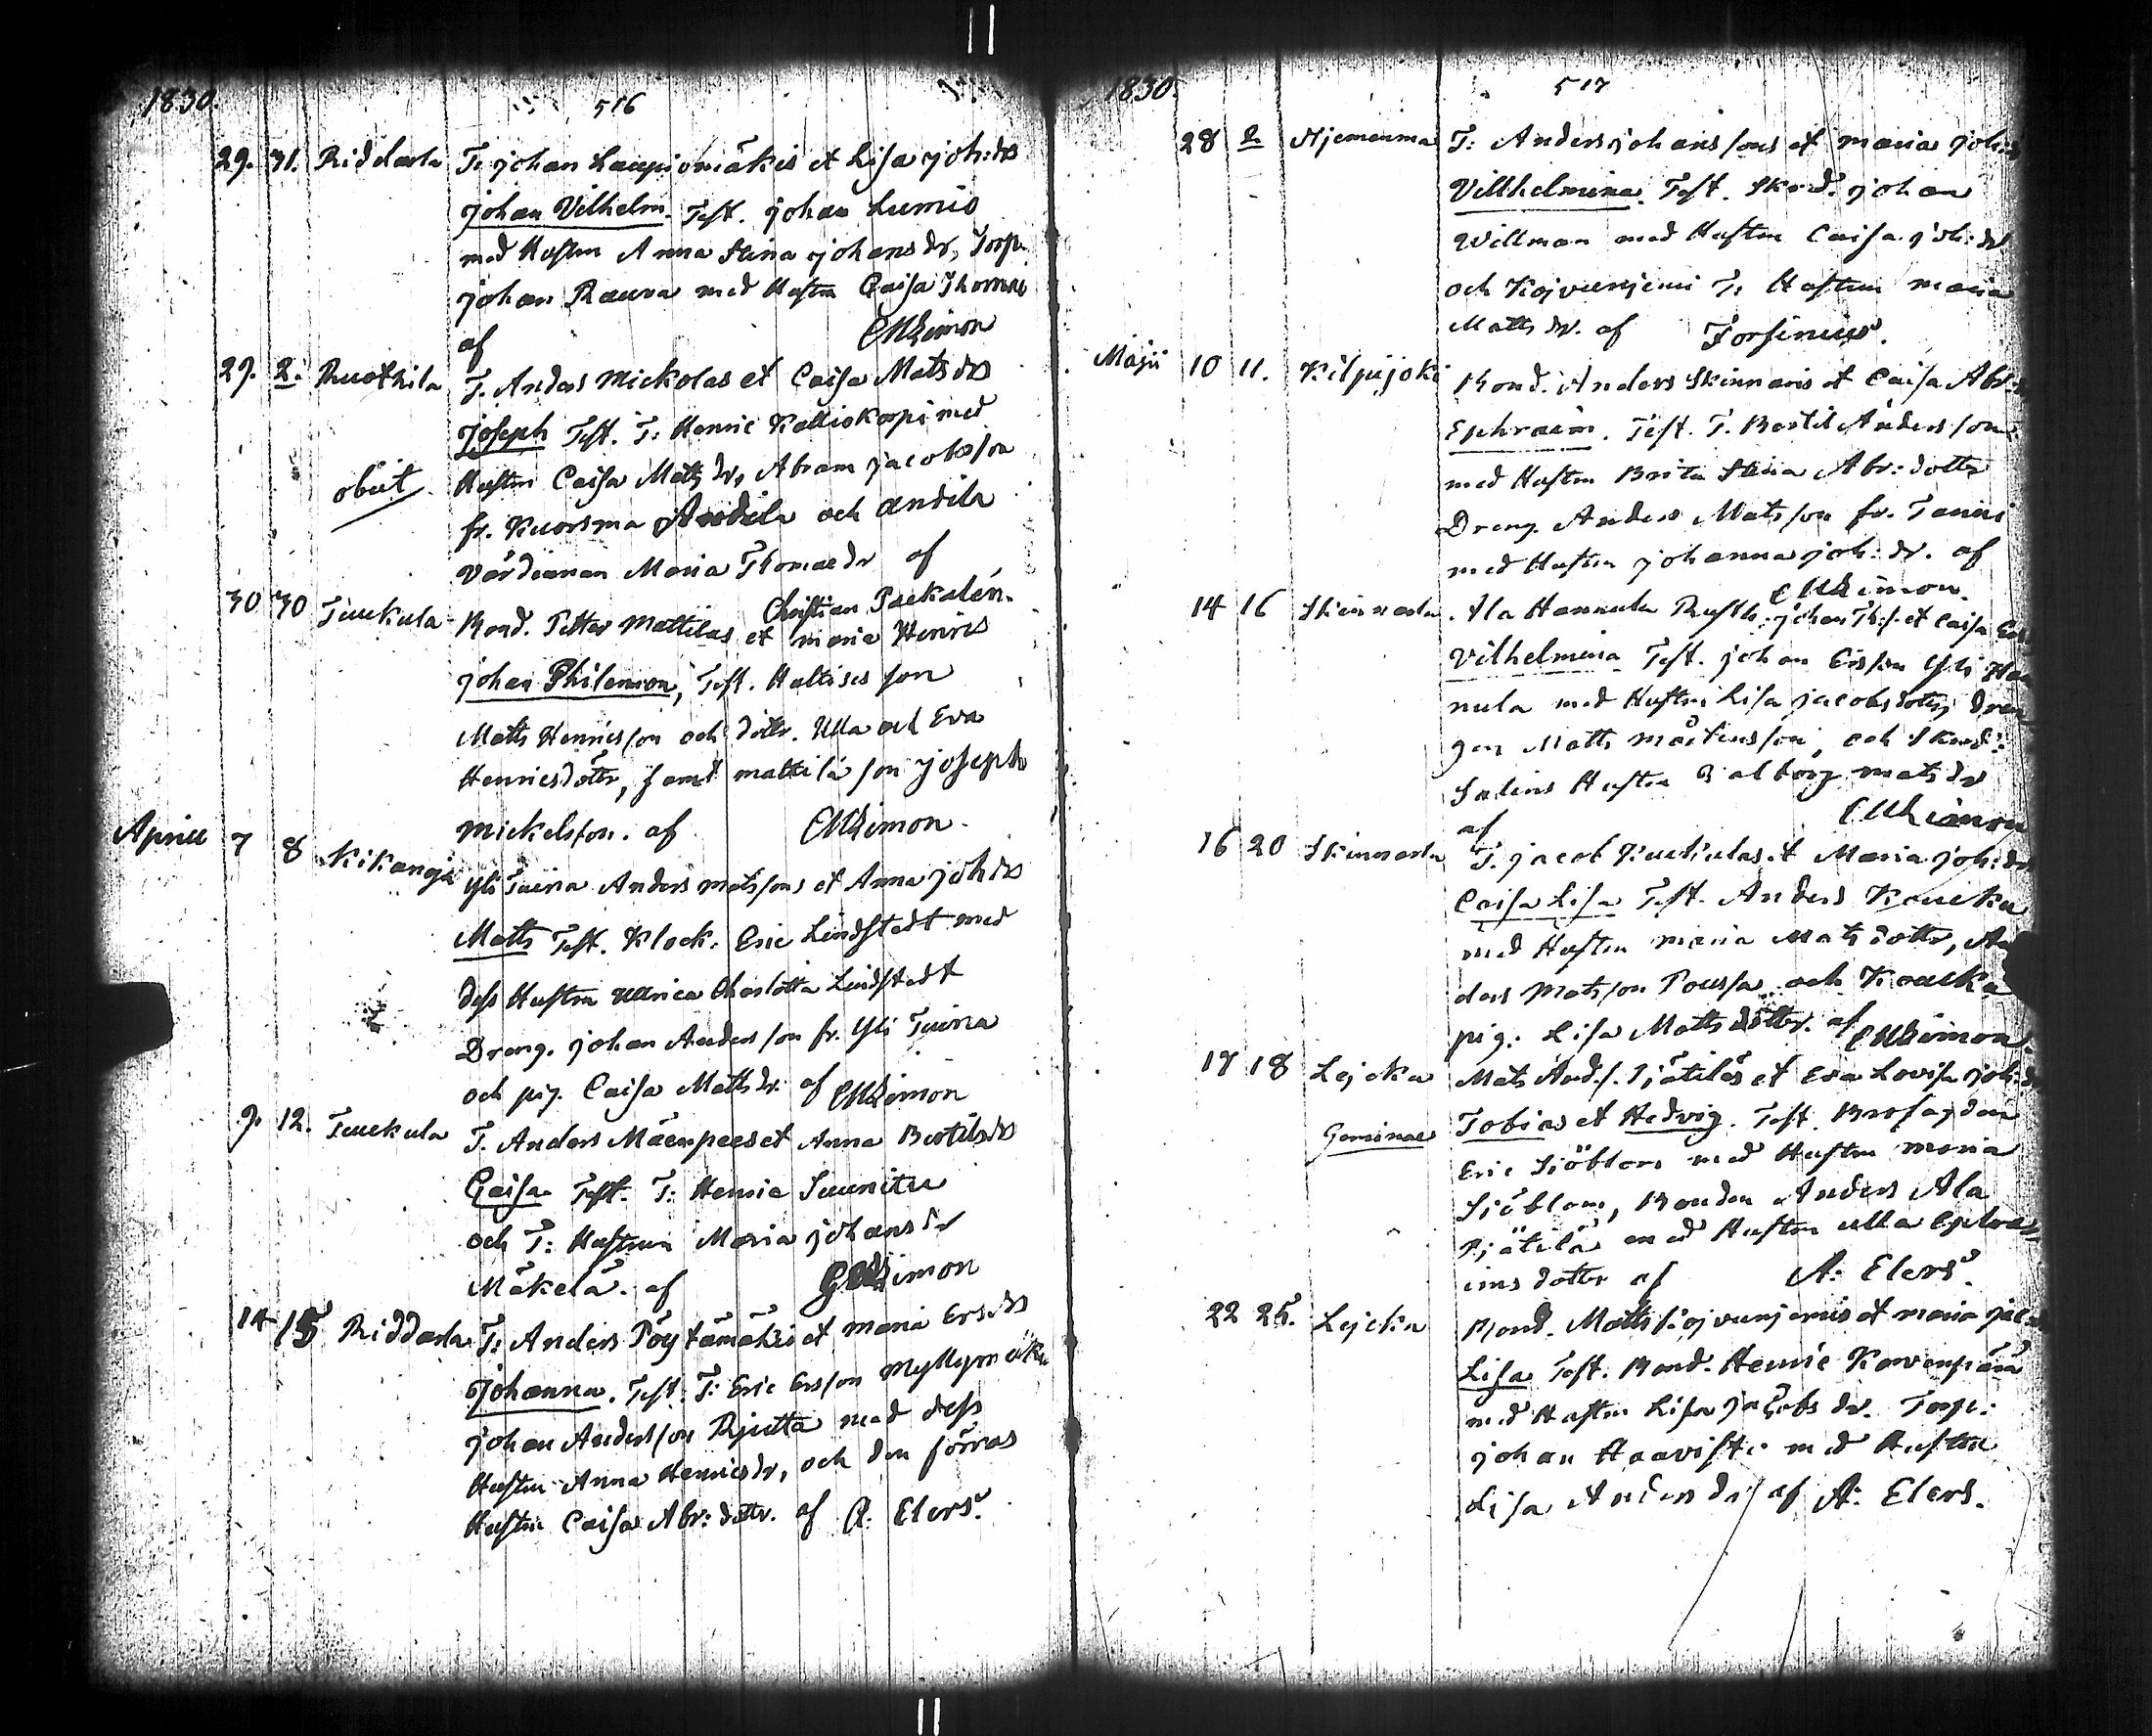 1830.
516
29. 31. Riddarla T. johan Laupiomäkis et Lisa joh:dr
johan Vilhelm. Test. johan Lumio
med Hustru Anna Stina johansdr, Torp.
johan Rauva med Hustru Caisa Thomæ
af
29. 2. Ruothila T. Anders Mickolas et Caisa Matsdr
joseph Test. T: Henric Kalliokorpi med
obiit
Hustru Caisa Mattsdr, Abram jacobsson
fr. Kuorsma Andila och Andila
Värdinnan Maria Thomædr af
Christian Paekalén.
30 30 Tuukula Bond. Petter Mattilas et maria Henrics
johan Philemon, Test. Hallises son
Matts Henricsson och dottr. Ulla och Eva
Henricsdöttr, samt mattila son joseph
Mickelsson. af
Aprill 7 8 Kikanoja Yli Tuina Anders matssons et Anna johdr
Matts Test. Klock. Eric Lindstedt med
dess Hustru Ulrica Charlotta Lindstedt
Dreng. johan Andersson fr. Yli Tuina
och pig. Caisa Mattsdr. af
9. 12. Tuukula T. Anders Mäenpees et Anna Bertilsdr
Caisa Test. T: Henric Suunitu
och T: Hustrun Maria johansdr
Mäkelä. af
14 15 Riddarla T: Anders Pöytämäkis et maria Ersdr
johanna. Test. T: Eric Ersson Myllymäki
johan Andersson Rjutta med dess
Hustru Anna Henricsdr, och den förras
Hustru Caisa Abr: dottr. af A. Elers.
1830.
517
28 2 Njemenmaa T: Anders johanssons et maria joh:
Villhelmina. Test. Skrd. johan
Willman med Hustru Caisa joh:dr
och Kojvunjemi T. Hustrun maria
Mattsdr. af Forsinius.
Majii 10 11. Kilpijoki Bond. Anders Skinnaris et Caisa Abr:
Ephraim. Test. T. Bertil Andersson
med Hustru Brita Stina Abr: dottr
Dreng. Anders Matsson fr. Tanni
med Hustru johanna joh: dr. af
14 16 Skinnarla. Ala Hannula Rusth. johan Th:s. et Caisa
Vilhelmina Test. johan Ersson Yli Han
nula med Hustru Lisa jacobsdottr, dren
gen Matts mårtensson, och Skrd.
Salins Hustru Valborg matsdr
af
16 20 Skinnarla T. jacob Kukulas et Maria joh:dr
Caisa Lisa Test. Anders Koucku
med Hustru maria Matsdottr, An
ders Matsson Poussa och Koucka
pig. Lisa Mattsdottr. af
17 18 Lejcka Mats And.s. Pjätiläs et Eva Lovisa joh:d
Geminae Tobias et Hedvig. Test. Brofogden
Eric Siöblom med Hustru maria
Siöblom, Bonden Anders Ala
Pjätilä med Hustru Ulla Ephra
imsdotter af A: Elers.
22 25. Lejcka Bond. Matts Kojvunjemis et maria jac
Lisa Test. Bond. Henric Korvenpää
med Hustru Lisa jacobsdr. Torp:
johan Haavisto med Hustru
Lisa Andersdr af A: Elers.